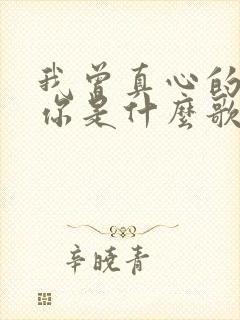 我曾真心的
你是什麼歌
辛曉青